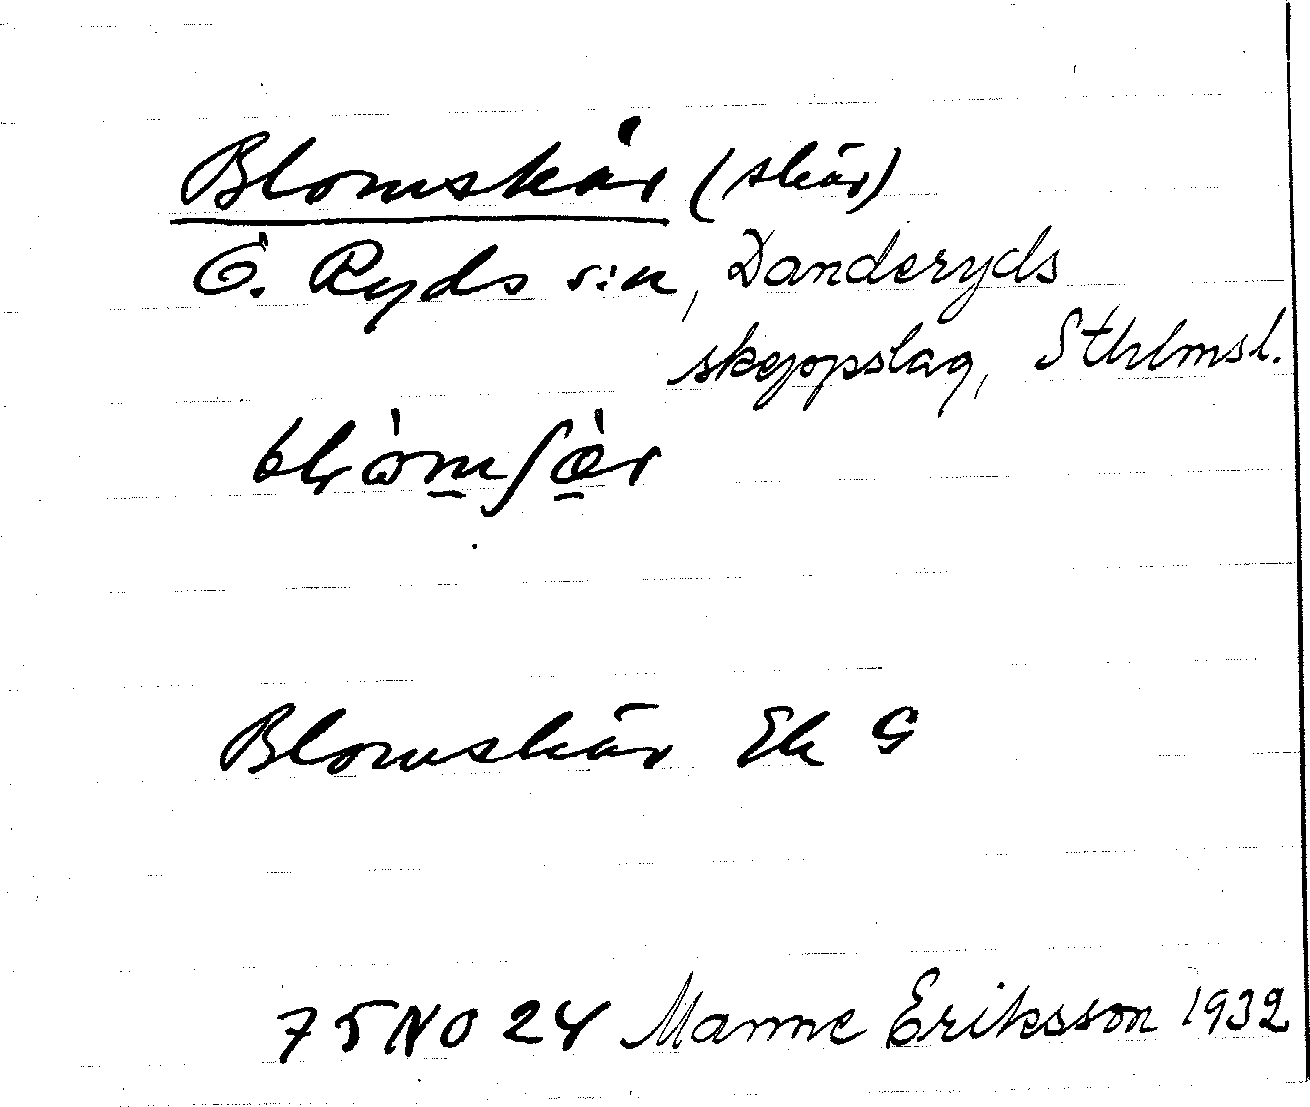 Blomskär (skär)
Ö. Ryds s:n, Danderyds
skeppslag, Sthlmsl.
Blomskär Ek G
75 NO 24 Manne Eriksson 1932